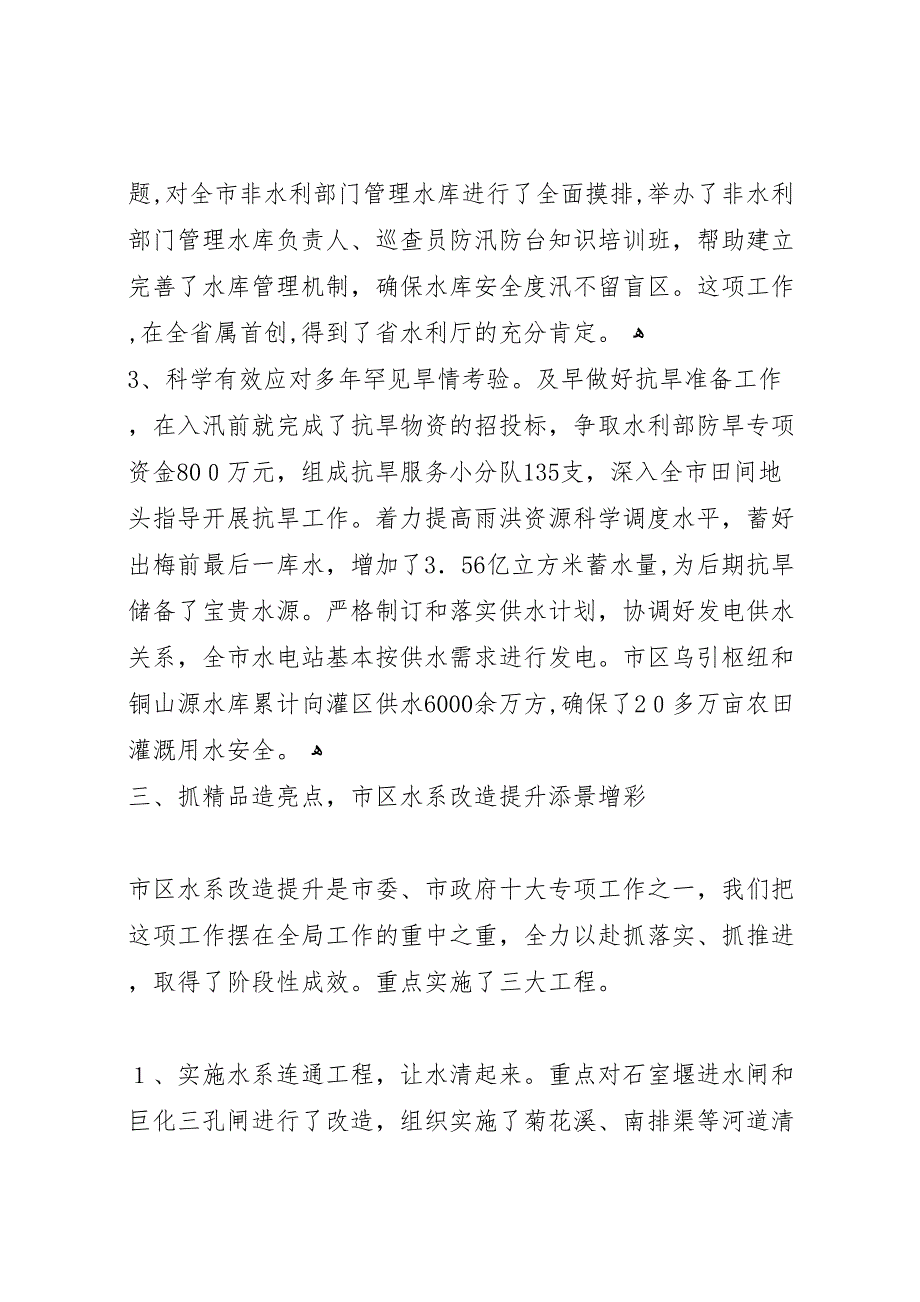 题,对全市非水利部门管理水库进行了全面摸排,举办了非水利
部门管理水库负责人、巡查员防汛防台知识培训班，帮助建立
完善了水库管理机制，确保水库安全度汛不留盲区。这项工作
,在全省属首创,得到了省水利厅的充分肯定。 ﻫ
3、科学有效应对多年罕见旱情考验。及早做好抗旱准备工作
，在入汛前就完成了抗旱物资的招投标，争取水利部防旱专项
资金80０万元，组成抗旱服务小分队135支，深入全市田间地
头指导开展抗旱工作。着力提高雨洪资源科学调度水平，蓄好
出梅前最后一库水，增加了3．56亿立方米蓄水量,为后期抗旱
储备了宝贵水源。严格制订和落实供水计划，协调好发电供水
关系，全市水电站基本按供水需求进行发电。市区乌引枢纽和
铜山源水库累计向灌区供水6000余万方,确保了2０多万亩农田
灌溉用水安全。 ﻫ
三、抓精品造亮点，市区水系改造提升添景增彩
市区水系改造提升是市委、市政府十大专项工作之一，我们把
这项工作摆在全局工作的重中之重，全力以赴抓落实、抓推进
，取得了阶段性成效。重点实施了三大工程。
１、实施水系连通工程，让水清起来。重点对石室堰进水闸和
巨化三孔闸进行了改造，组织实施了菊花溪、南排渠等河道清